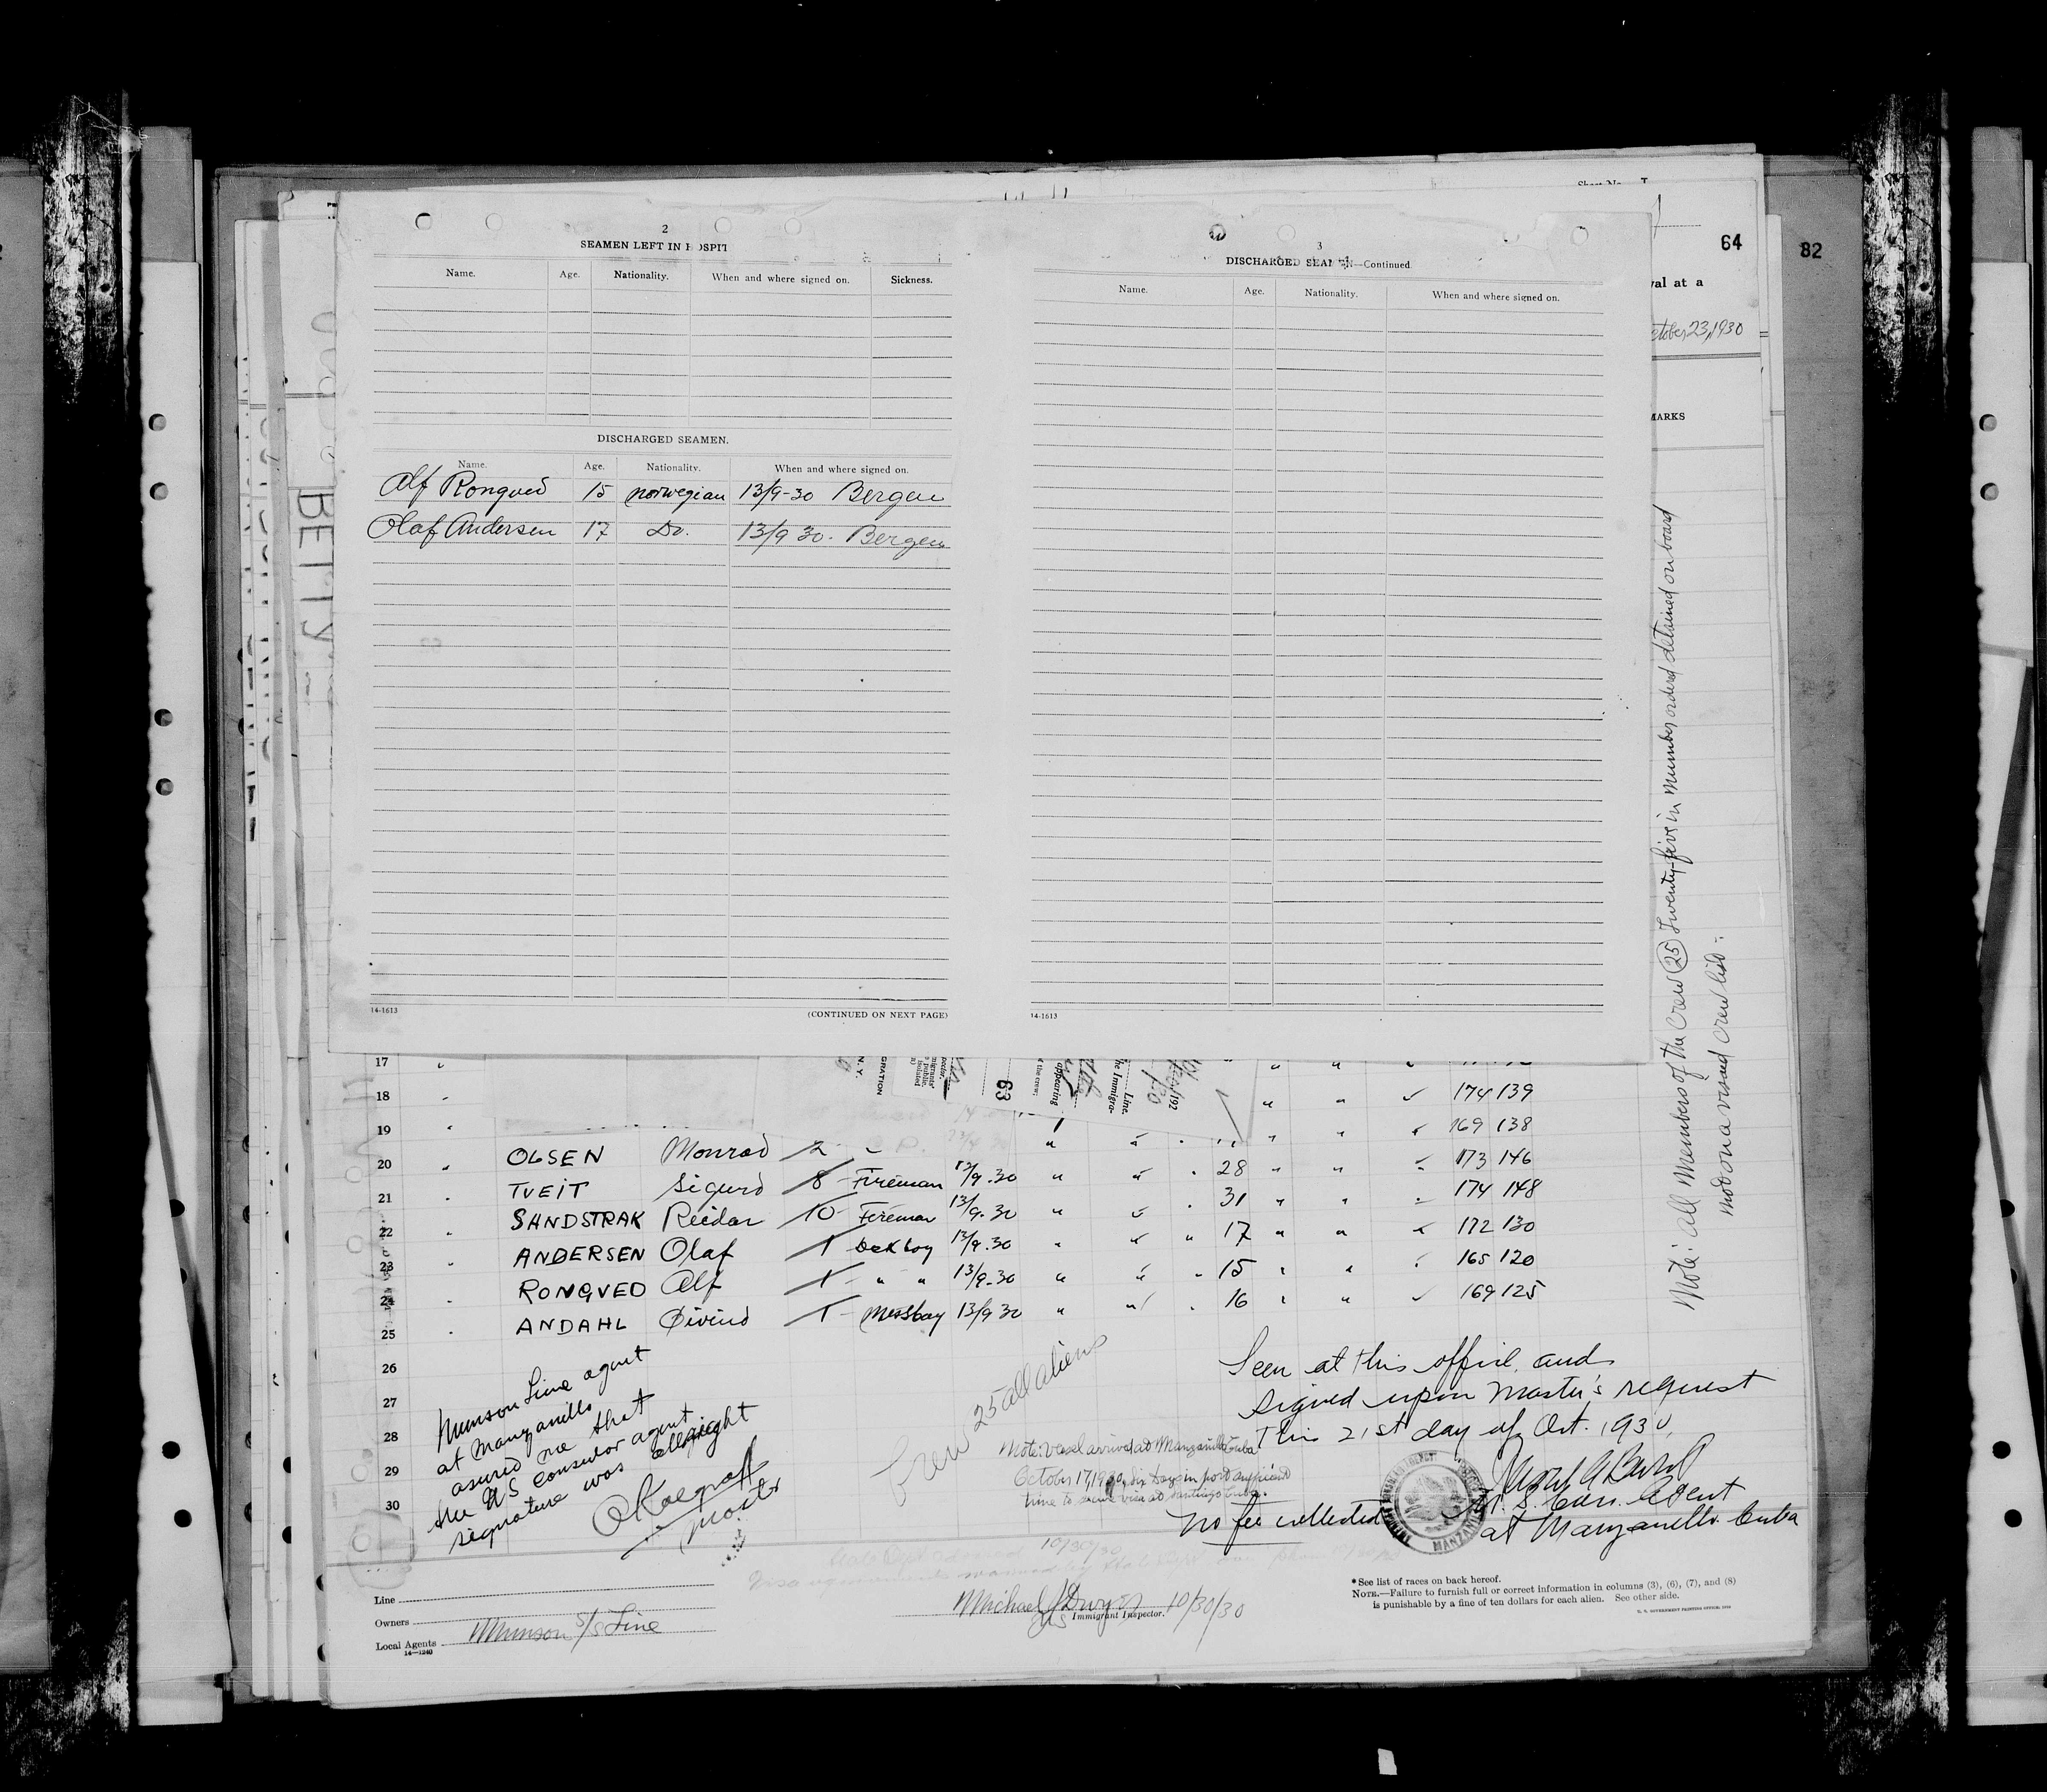 64
82
val at a
ctober 23, 1930
MARKS
2
SEAMEN LEFT IN HOSPIT
Name. Age. Nationality. When and where signed on. Sickness.
DISCHARGED SEAMEN.
Name. Age. Nationality. When and where signed on.
Alf Rongved 15 norwegian 13/9-30 Bergen
Olaf Andersen 17 Do. 13/9 30. Bergen
14-1613
(CONTINUED ON NEXT PAGE)
3
DISCHARGED SEAMEN—Continued.
Name. Age. Nationality. When and where signed on.
14-1613
BETTY
Note: all Members of the Crew (25) Twenty-five in number ordered detained on board
not on a visaed crew list:-
63
17 "
18 " 174 139
19 " 169 138
20 " OLSEN Monrad 2 " 28 " " 173 146
21 " TVEIT Sigurd 8 Fireman 13/9.30 " " 31 " " 174 148
22 " SANDSTRAK Reidar 10 Fireman 13/9.30 " " 17 " " 172 130
23 " ANDERSEN Olaf 1 Deckboy 13/9.30 " " 15 " " 165 120
24 " RONGVED Alf 1 " " 13/9-30 " " 16 " " 169 125
25 " ANDAHL Øivind 1 Messboy 13/9 30 " "
26
27
28
29
30
Munson Line agent
at Manzanillo
assured me that
the US consular agent
signature was allright
Master
Crew 25 all aliens
Note: Vessel arrived at Manzanillo Cuba
October 17, 1930, six days in port sufficient
time to secure visa at Santiago Cuba.
Seen at this office, and
signed upon Master's request
this 21st day of Oct. 1930,
U. S. Con. Agent
at Manzanillo Cuba
No fee collected
MANZANILLO
10/30/30
Line
Owners
Local Agents Munson S/S Line
14—1240
Michael J Dwyer 10/30/30
US Immigrant Inspector.
*See list of races on back hereof.
NOTE.—Failure to furnish full or correct information in columns (3), (6), (7), and (8)
is punishable by a fine of ten dollars for each alien. See other side.
U. S. GOVERNMENT PRINTING OFFICE